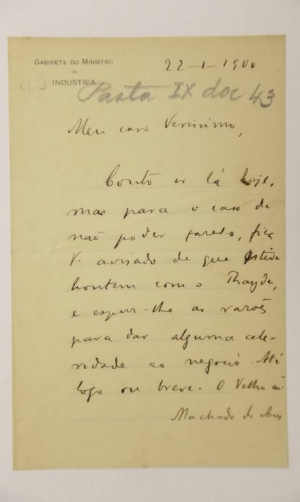 GABINETE DO MINISTRO
DA
INDUSTRIA
22-1-1900
43
Pasta IX doc 43
Meu caro Verissimo,
Conto ir lá hoje,
mas para o caso de
não poder fazelo, fica
V. avisado de que estive
hontem com o Thayde,
e expuz-lhe as razões
para dar alguma cele-
ridade ao negocio. Até
logo ou breve. O Velho am
Machado de Assis